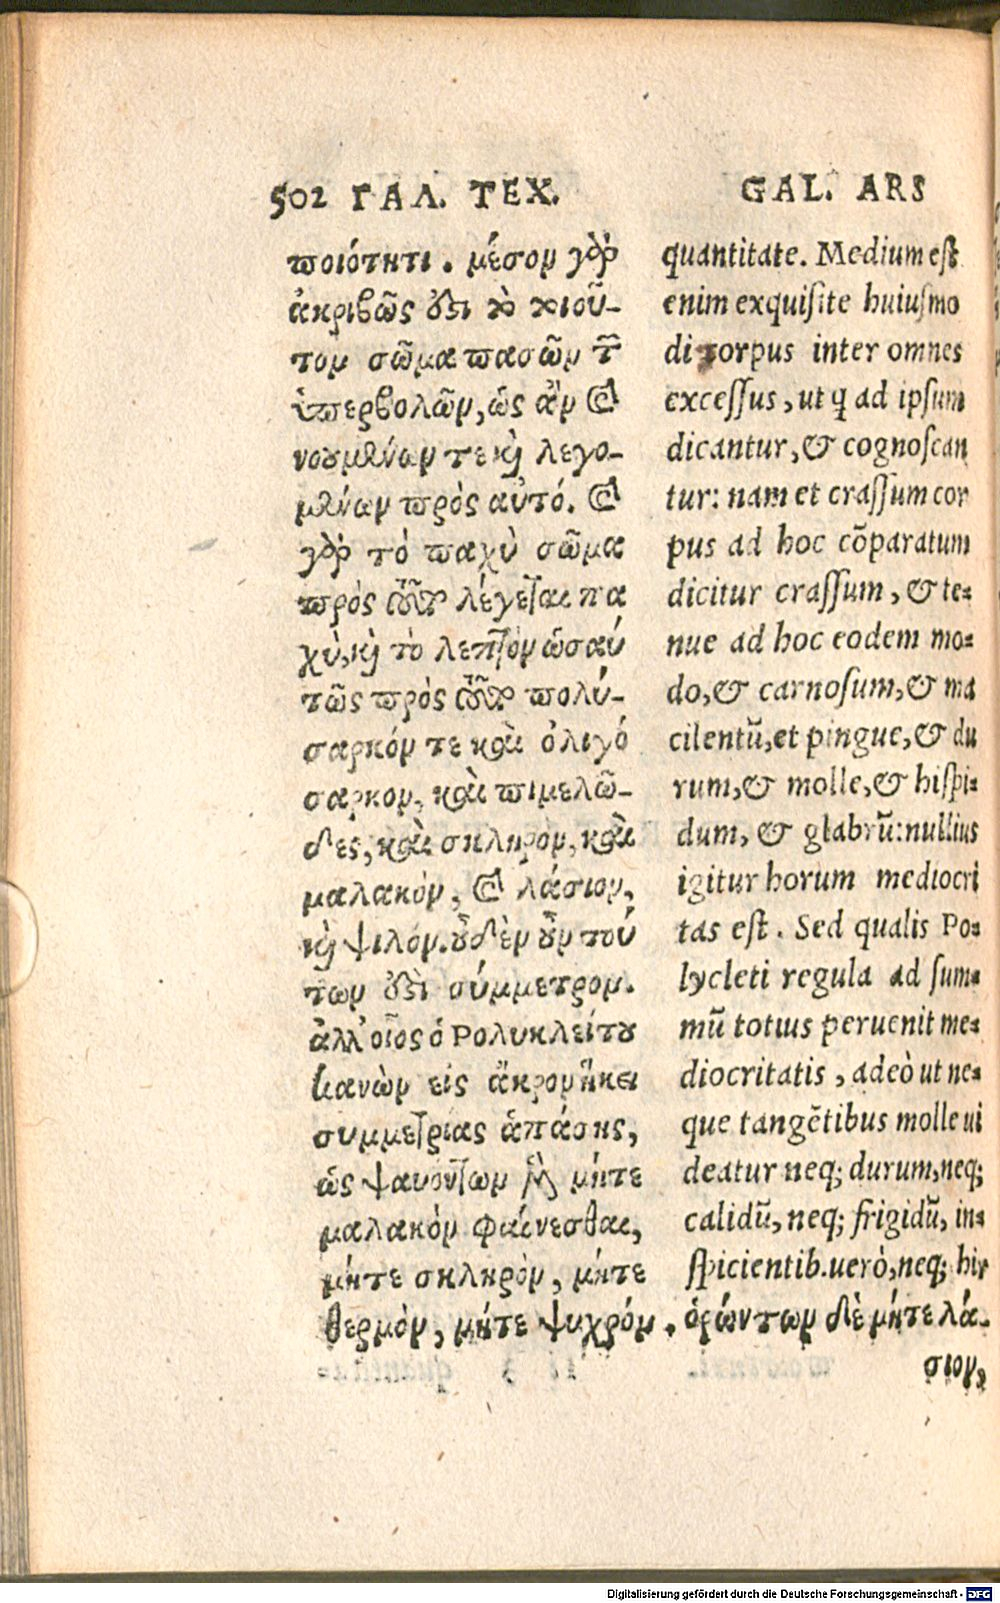 502 ΓΑΛ. ΤΕΧ.
ποιότητι. μέσον γὰρ
ἀκριβῶς ἐστι τὸ τοιοῦ-
τον σῶμα πασῶν τῶν
ὑπερβολῶν, ὡς ἂν καὶ
νουμένων τε καὶ λεγο-
μένων πρὸς αὐτό. καὶ
γὰρ τὸ παχὺ σῶμα
πρὸς τοῦτο λέγεται πα
χὺ, καὶ τὸ λεπτὸν ὡσαύ
τῶς πρὸς τοῦτο πολύ-
σαρκόν τε καὶ ὀλιγό
σαρκον, καὶ πιμελῶ-
δες, καὶ σκληρὸν, καὶ
μαλακόν, καὶ λάσιον,
καὶ ψιλόν. οὐδὲν οὖν τού
των ἐστὶ σύμμετρον.
ἀλλ' οἷος ὁ Ρολυκλείτου
κανὼν εἰς ἄκρον ἥκει
συμμετρίας ἁπάσης,
ὡς ψαυόντων μὲν μήτε
μαλακὸν φαίνεσθαι,
μήτε σκληρὸν, μήτε
θερμὸν, μήτε ψυχρόν. ὁρώντων δὲ μήτε λά-
σιον,
GAL. ARS
quantitate. Medium est
enim exquisite huiusmo
di corpus inter omnes
excessus, ut q ad ipsum
dicantur, & cognoscan
tur: nam et crassum cor
pus ad hoc cõparatum
dicitur crassum, & te-
nue ad hoc eodem mo-
do, & carnosum, & ma
cilentũ, et pingue, & du
rum, & molle, & hispi-
dum, & glabrũ: nullius
igitur horum mediocri
tas est. Sed qualis Po-
lycleti regula ad sum-
mũ totius peruenit me-
diocritatis, adeò ut ne-
que tangẽtibus molle ui
deatur neq; durum, neq;
calidũ, neq; frigidũ, in-
spicientib. uerò, neq; hir
Digitalisierung gefördert durch die Deutsche Forschungsgemeinschaft - DFG